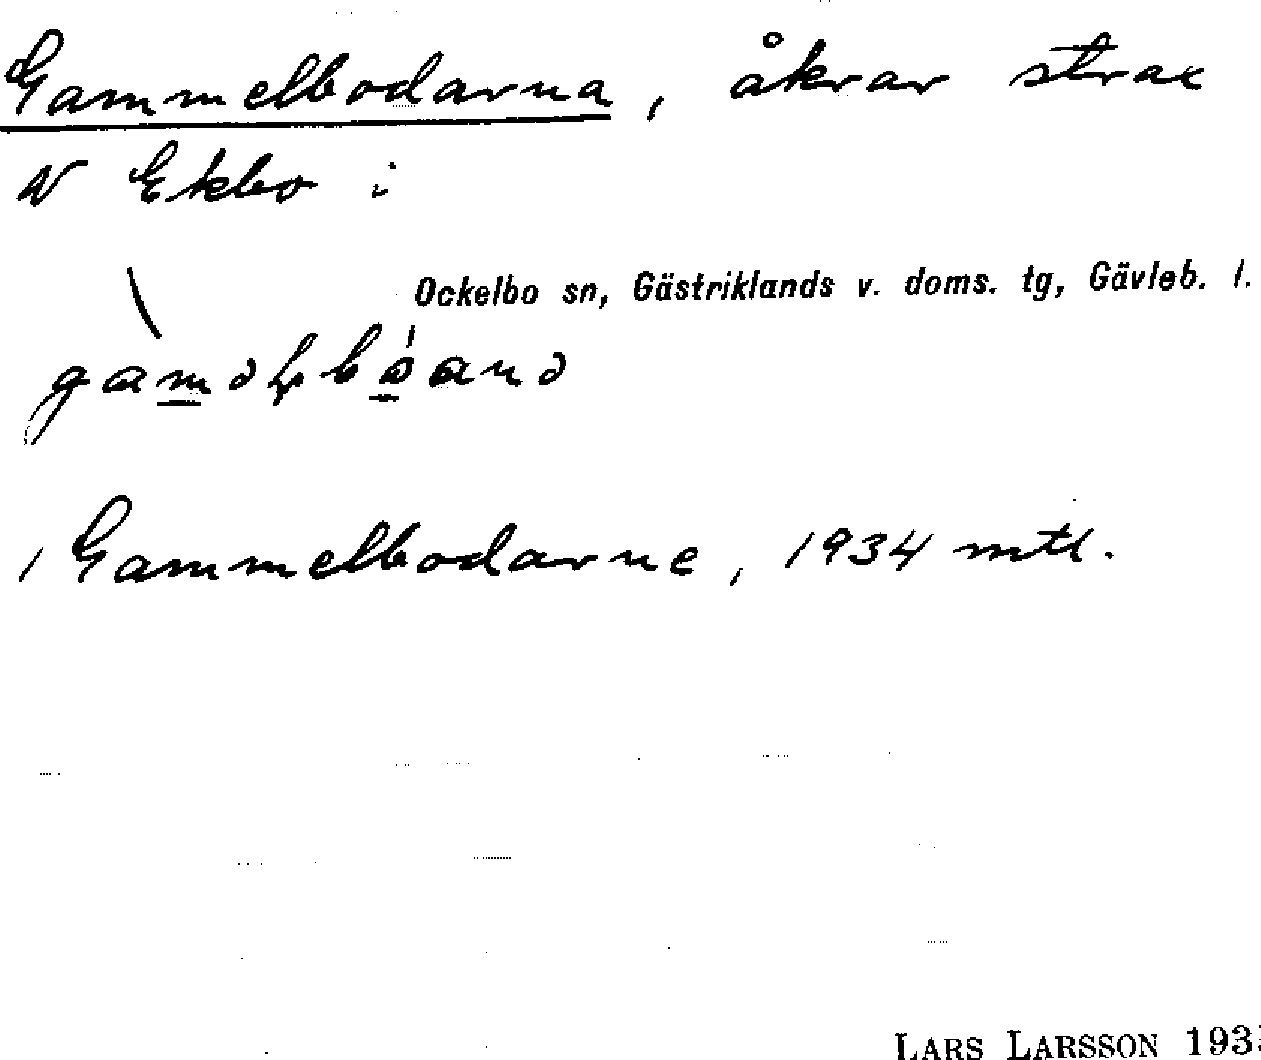 Gammelbodarna, åkrar strax
N Ekbo i
Ockelbo sn, Gästriklands v. doms. tg, Gävleb. l.
1 Gammelbodarne, 1934 mtl.
LARS LARSSON 193